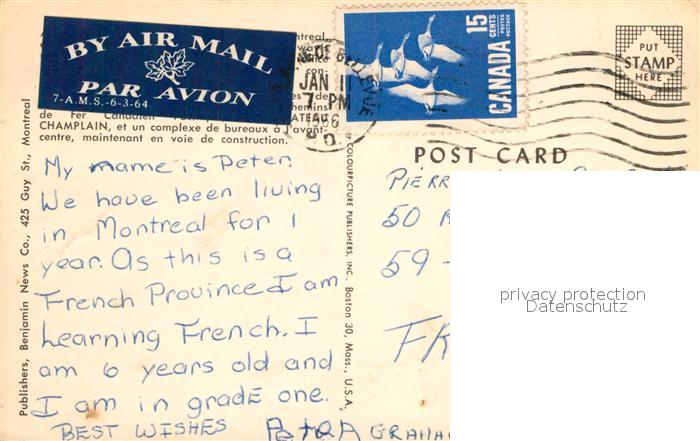 BY AIR MAIL
PAR AVION
7-A.M.S.-6-3-64
de Fer
CHAMPLAIN, et un complexe de bureaux à l'avant-
centre, maintenant en voie de construction.
15
CENTS
POSTES
POSTAGE
CANADA
JAN 11
7 PM
1966
P.Q.
PUT
STAMP
HERE
POST CARD
Publishers, Benjamin News Co., 425 Guy St., Montreal
COLOURPICTURE PUBLISHERS, INC., Boston 30, Mass., U.S.A.
My name is Peter.
We have been living
in Montreal for 1
year. As this is a
French Province I am
Learning French. I
am 6 years old and
I am in grade one.
BEST WISHES
PIERR
50
59-
FR
privacy protection
Datenschutz